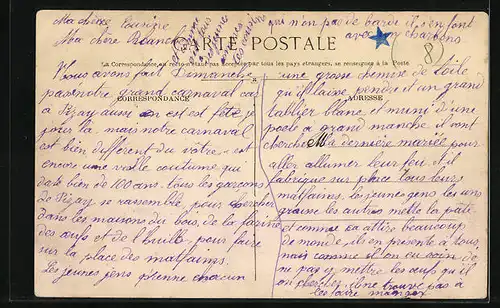 Ma chère Cousine
Ma chère Blanche
qui n'on pas de barbe il s'en font
avec du charbons
CARTE POSTALE
8
La Correspondance au recto n'étant pas acceptée par tous les pays étrangers, se renseigner à la Poste
CORRESPONDANCE
ADRESSE
Vous avons fait Dimanche
passe notre grand carnaval car
a Pizay aussi on est est fête je
pour la mais notre carnaval
est bien different du vôtre. est
encore une vielle coutume qui
date bien de 100 ans. tous les garçons
de Pizay se rassemble, pour chercher
dans les maisons du bois, de la farine
des œufs et de l'huille, pour faire
sur la place des matfaims.
Les jeunes gens prenne chacun
une grosse chemise de toile
qu'il laisse pendre et un grand
tablier blanc et muni d'une
poele a grand manche il vont
chercher Ma dernière mariée pour
aller allumer leur feu et il
fabrique sur place tous leurs
matfaims. les jeunes gens les uns
graisse les autres mette la pâte
et comme ca attire beaucoup
de monde, ils en présente à tous,
mais comme il on eu soin de
ne pas y mettre les œufs qu'il
on cherchez, il ne trouve pas a
les faire manger